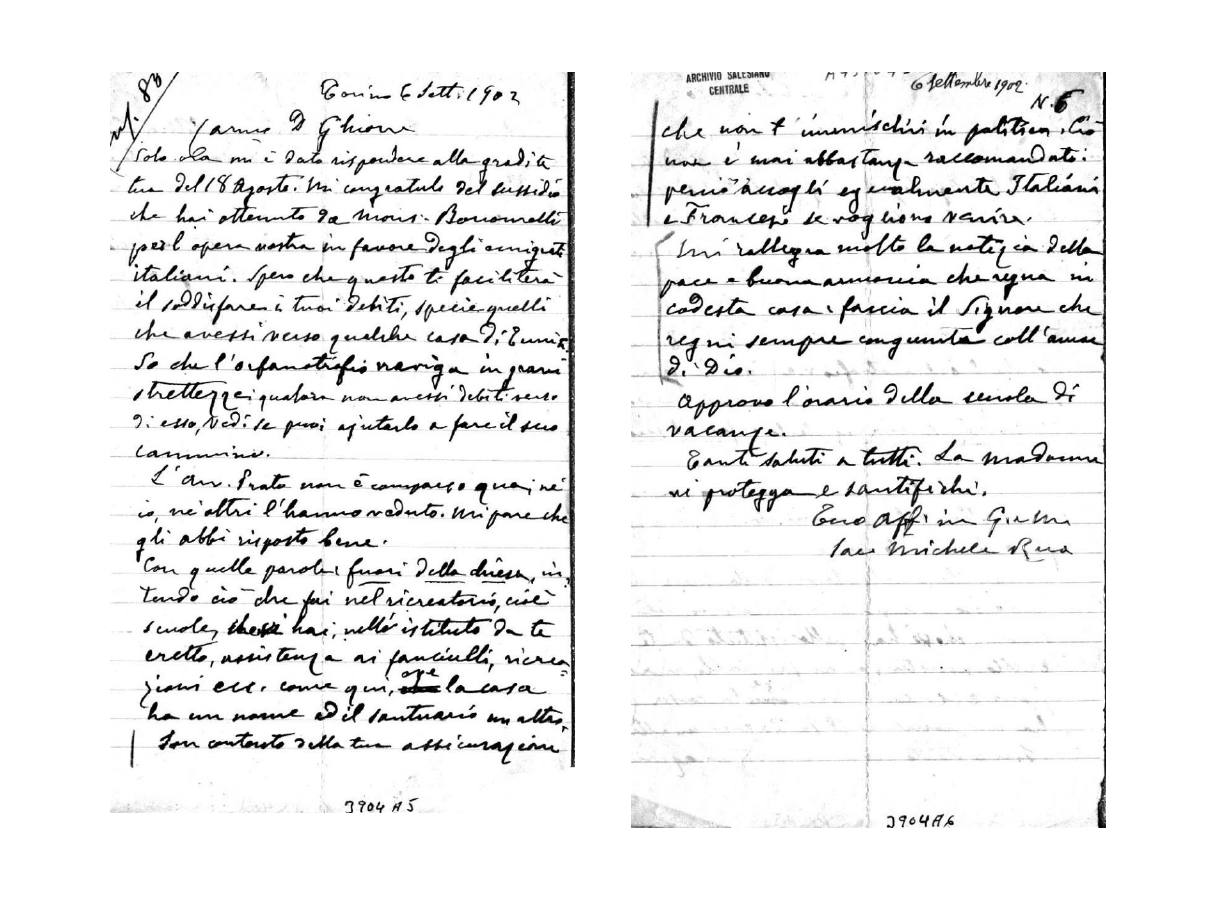 83
Torino 6 Sett. 1902
D Ghione
Solo ora mi è dato rispondere alla gradita
tua del 18 Agosto. Mi congratulo del sussidio
che hai ottenuto da Mons. Bonomelli
per l'opera vostra in favore degli emigrati
italiani. Spero che questo ti faciliterà
il soddisfare i tuoi debiti, specie quelli
che avessi verso qualche casa di
So che l'orfanotrofio naviga in gravi
strettezze: qualora non avessi debiti verso
di esso, vedi se puoi ajutarlo a fare il suo
cammino.
L'Avv. Prato non è comparso qua; nè
io, nè altri l'hanno veduto. Mi pare che
gli abbi risposto bene.
Con quelle parole: fuori della chiesa, in-
tendo ciò che fai nel ricreatorio, cioè
scuole, hai, nello istituto da te
eretto, assistenza ai fanciulli, ricrea=
zioni ecc. come qui, ove la casa
ha un nome ed il santuario un altro.
Son contento della tua assicurazione
3904 A5
ARCHIVIO SALESIANO
CENTRALE
6 Settembre 1902
N. 6
che non t'immischii in politica. Ciò
non è mai abbastanza raccomandato:
perciò accogli egualmente Italiani
e Francesi se vogliono venire.
Mi rallegra molto la notizia della
pace e buona armonia che regna in
codesta casa: faccia il Signore che
regni sempre congiunta coll'amor
di Dio.
Approvo l'orario della scuola di
vacanze.
Tanti saluti a tutti. La Madonna
vi protegga e santifichi.
Tuo aff. in G. e M.
Sac. Michele Rua
3904A6